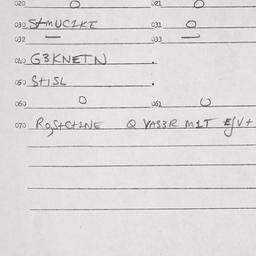 020 O 021 O
030 StMUC1KE 031 O
032 — 033 —
040 G3KNETN .
050 StISL .
060 O 061 O
070 RQStCt1NE Q YAS3R M1T E/V+